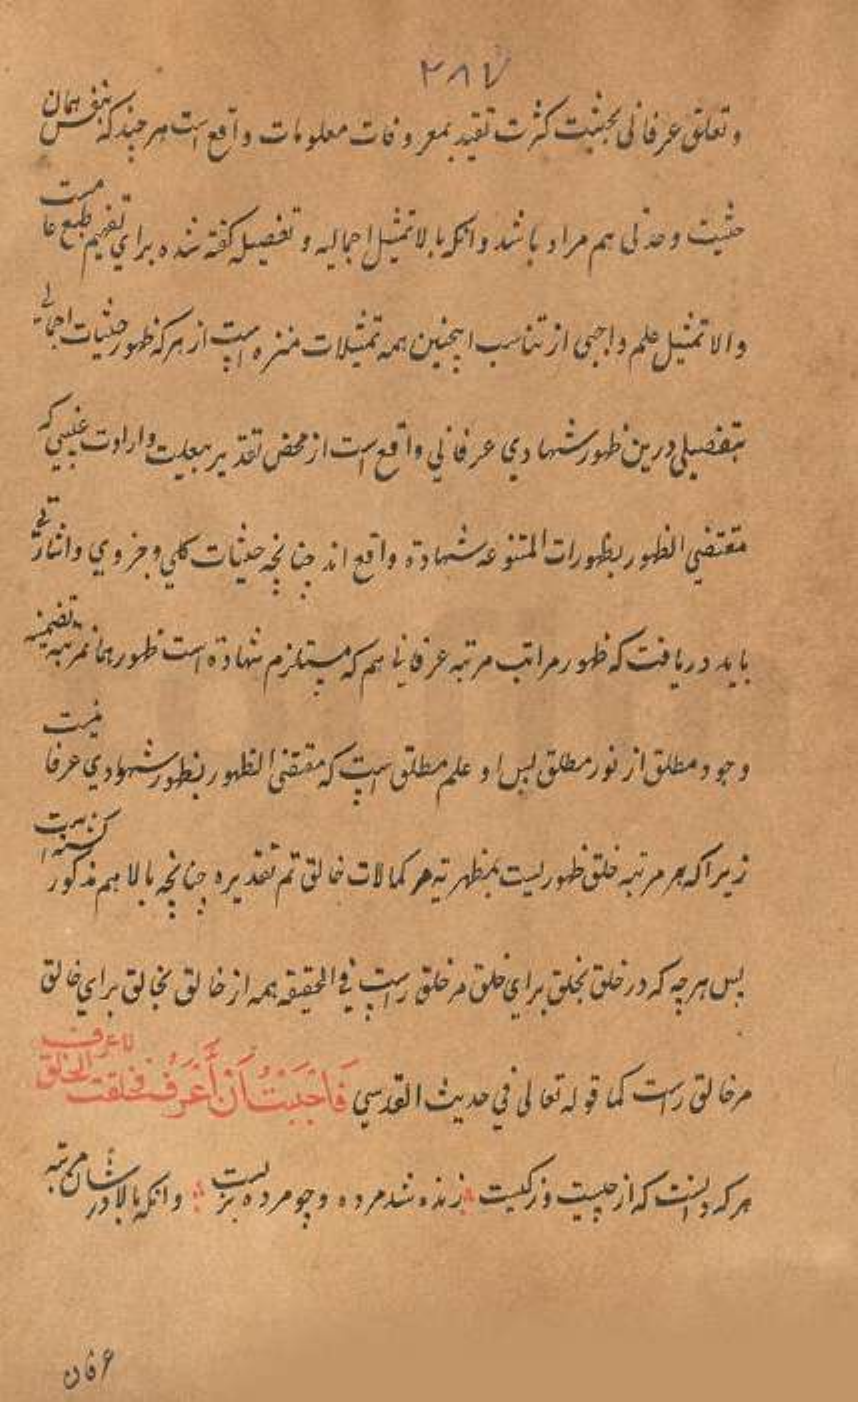 ۲۸۷
و تعلق عرفانی بحیثیت کثرت تقید بمعروفات معلومات واقع است هر چند که بنفس همان
حیثیت وحدتی هم مراد باشد و آنکه بالا تمثیل اجمالیه و تفصیل گفته شده برای تفهیم طبع عامست
والا تمثیل علم واجبی از تناسب اینچنین همه تمثیلات منزه است از هر که ظهور حیثیات اجمالی
بتفصیلی درین ظهور شهادی عرفانی واقع است از محض تقدیر بمعیت و ارادت غیبی که
مقتضی الظهور بظهورات المتنوعه شهادة واقع اند چنانچه حیثیات کلی و جزوی و اشارتی
باید دریافت که ظهور مراتب مرتبه عرفانی هم که مستلزم شهادة است ظهور همانمرتبه تضمینیه
وجود مطلق از نور مطلق پس او علم مطلق است که مقتضی الظهور بظهور شهودی عرفانیست
زیراکه هر مرتبه خلق ظهوریست بمظهریة هر کمالات خالق تم تقدیره چنانچه بالا هم مذکور گشته است
پس هر چه که در خلق بخلق برای خلق مر خلق راست فی الحقیقه همه از خالق بخالق برای خالق
مر خالق راست کما قوله تعالی فی حدیث القدسی فَاَحْبَبْتُ اَنْ اُعْرَفَ فخلقت الخلق لاعرف
هر که دانست که از چیست و ز کیست زنده شد مرده و چو مرده بزیست و آنکه بالا در شان مرتبه
عرفان